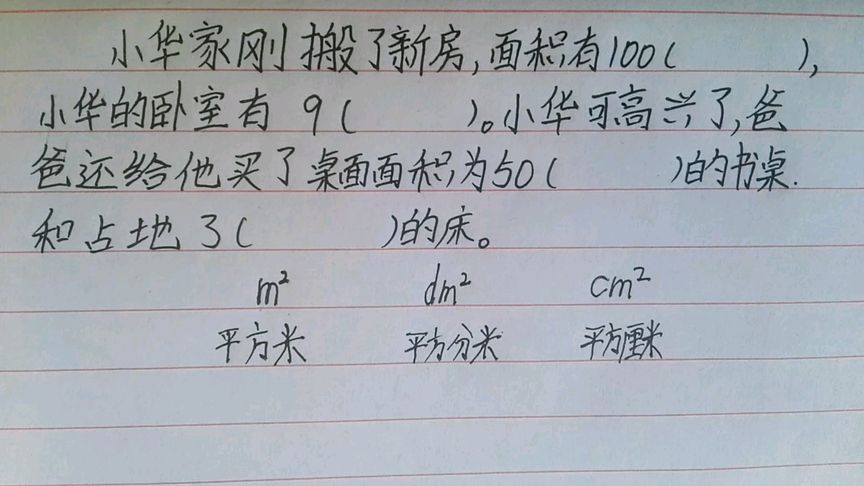 小华家刚搬了新房,面积有100(      ),
小华的卧室有 9(      )。小华可高兴了,爸
爸还给他买了桌面面积为50(      )的书桌.
和占地3(      )的床。
m² dm² cm²
平方米 平方分米 平方厘米